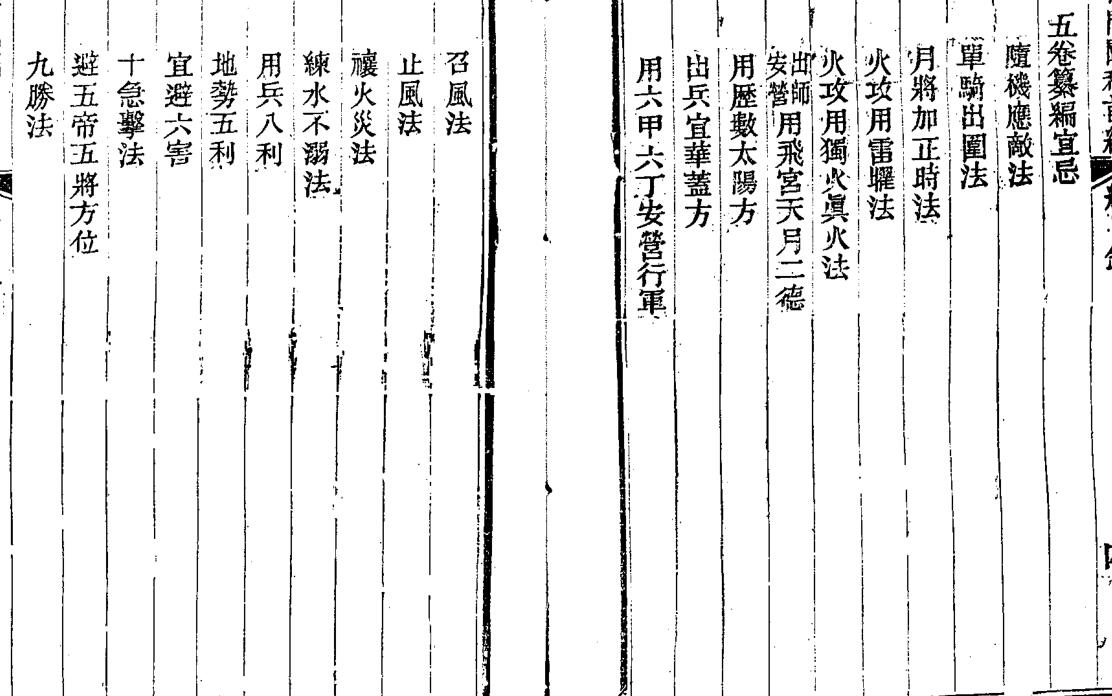 五卷纂編宜忌
隨機應敵法
單騎出圍法
月將加正時法
火攻用雷驛法
火攻用獨火眞火法
出師安營用飛宮天月二德
用歷數太陽方
出兵宜華蓋方
用六甲六丁安營行軍
召風法
止風法
禳火災法
練水不溺法
用兵八利
地勢五利
宜避六害
十急擊法
避五帝五將方位
九勝法